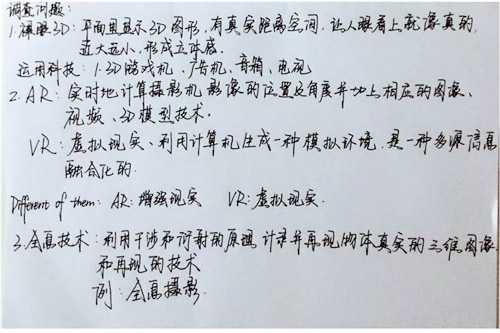 调查问题:
1.裸眼3D:平面里显示3D图形,有真实距离空间,让人眼看上就像真的,
近大远小,形成立体感.
运用科技:1.3D游戏机、广告机、音箱、电视
2.AR:实时地计算摄影机影像的位置及角度并加上相应的图像、
视频、3D模型技术.
VR:虚拟现实、利用计算机生成一种模拟环境,是一种多源信息
融合化的.
Different of them: AR:增强现实 VR:虚拟现实.
3.全息技术:利用干涉和衍射的原理记录并再现物体真实的三维图像
和再现的技术
例:全息摄影.